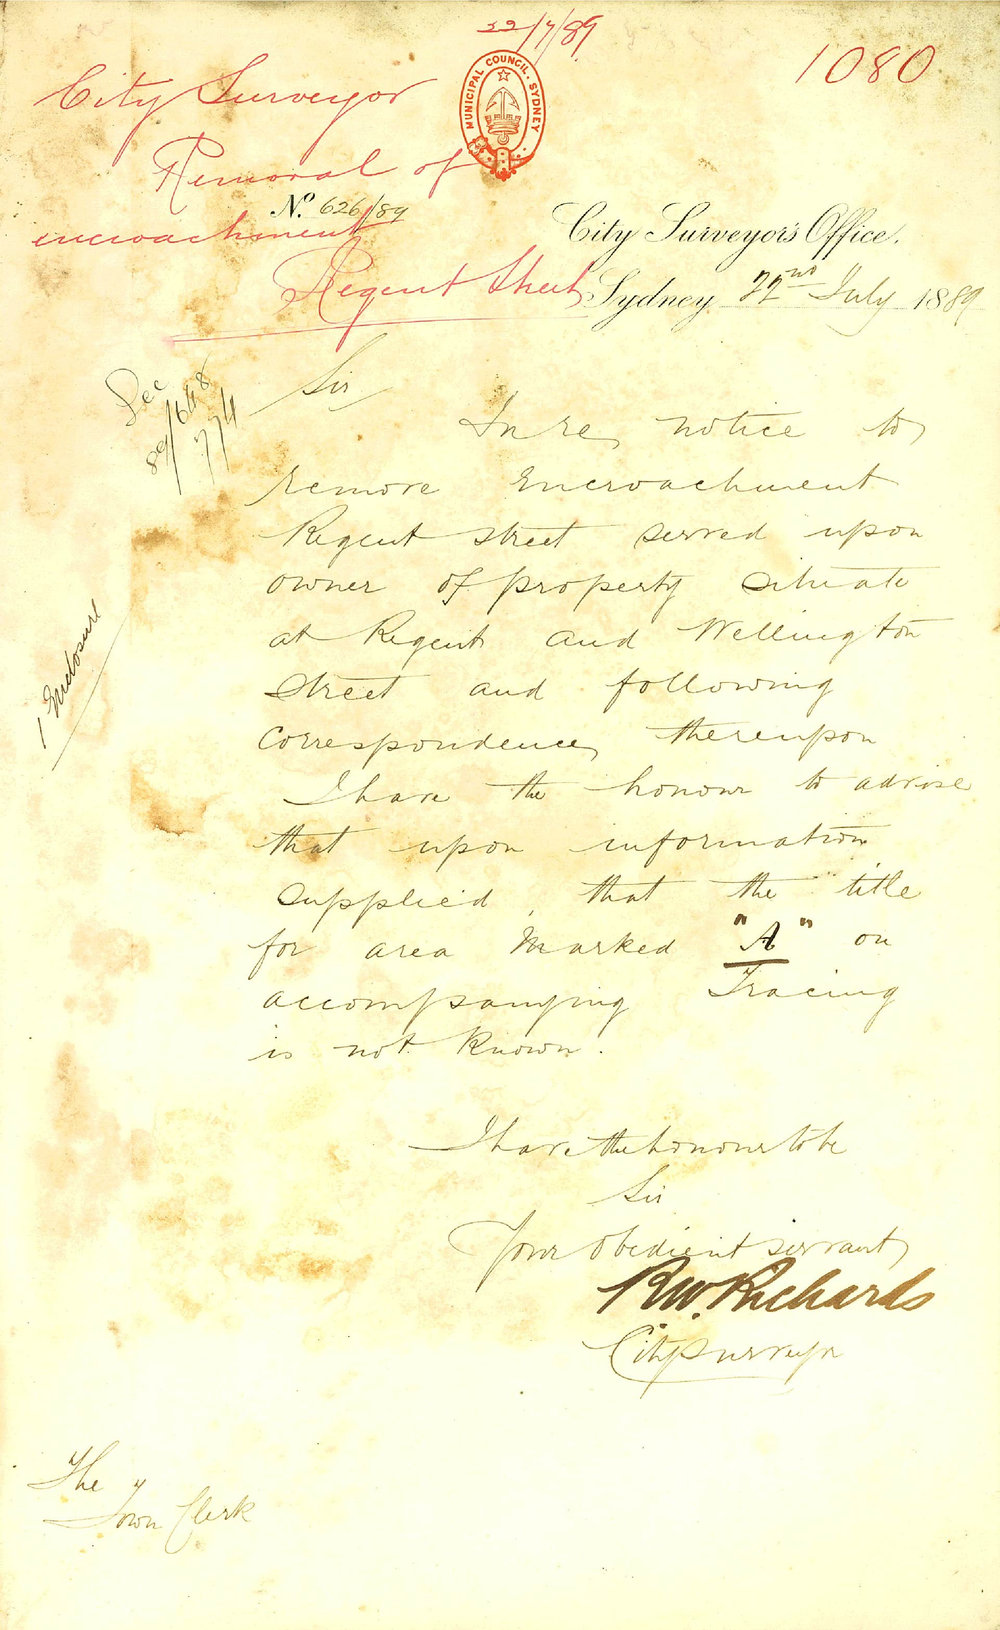 22/7/89
1080
MUNICIPAL COUNCIL. SYDNEY
City Surveyor
Removal of
encroachment
Regent Street
No. 626/89
City Surveyor's Office,
Sydney 22nd July 1889
Sec
89/648
774
1 Enclosure
Sir
In re, notice to
remove Encroachment
Regent street served upon
owner of property situate
at Regent and Wellington
Street and following
correspondence, thereupon
I have the honour to advise
that upon information
supplied, that the title
for area marked "A" on
accompanying Tracing
is not known.
I have the honour to be
Sir
Your obedient servant
R.W. Richards
City Surveyor
The
Town Clerk